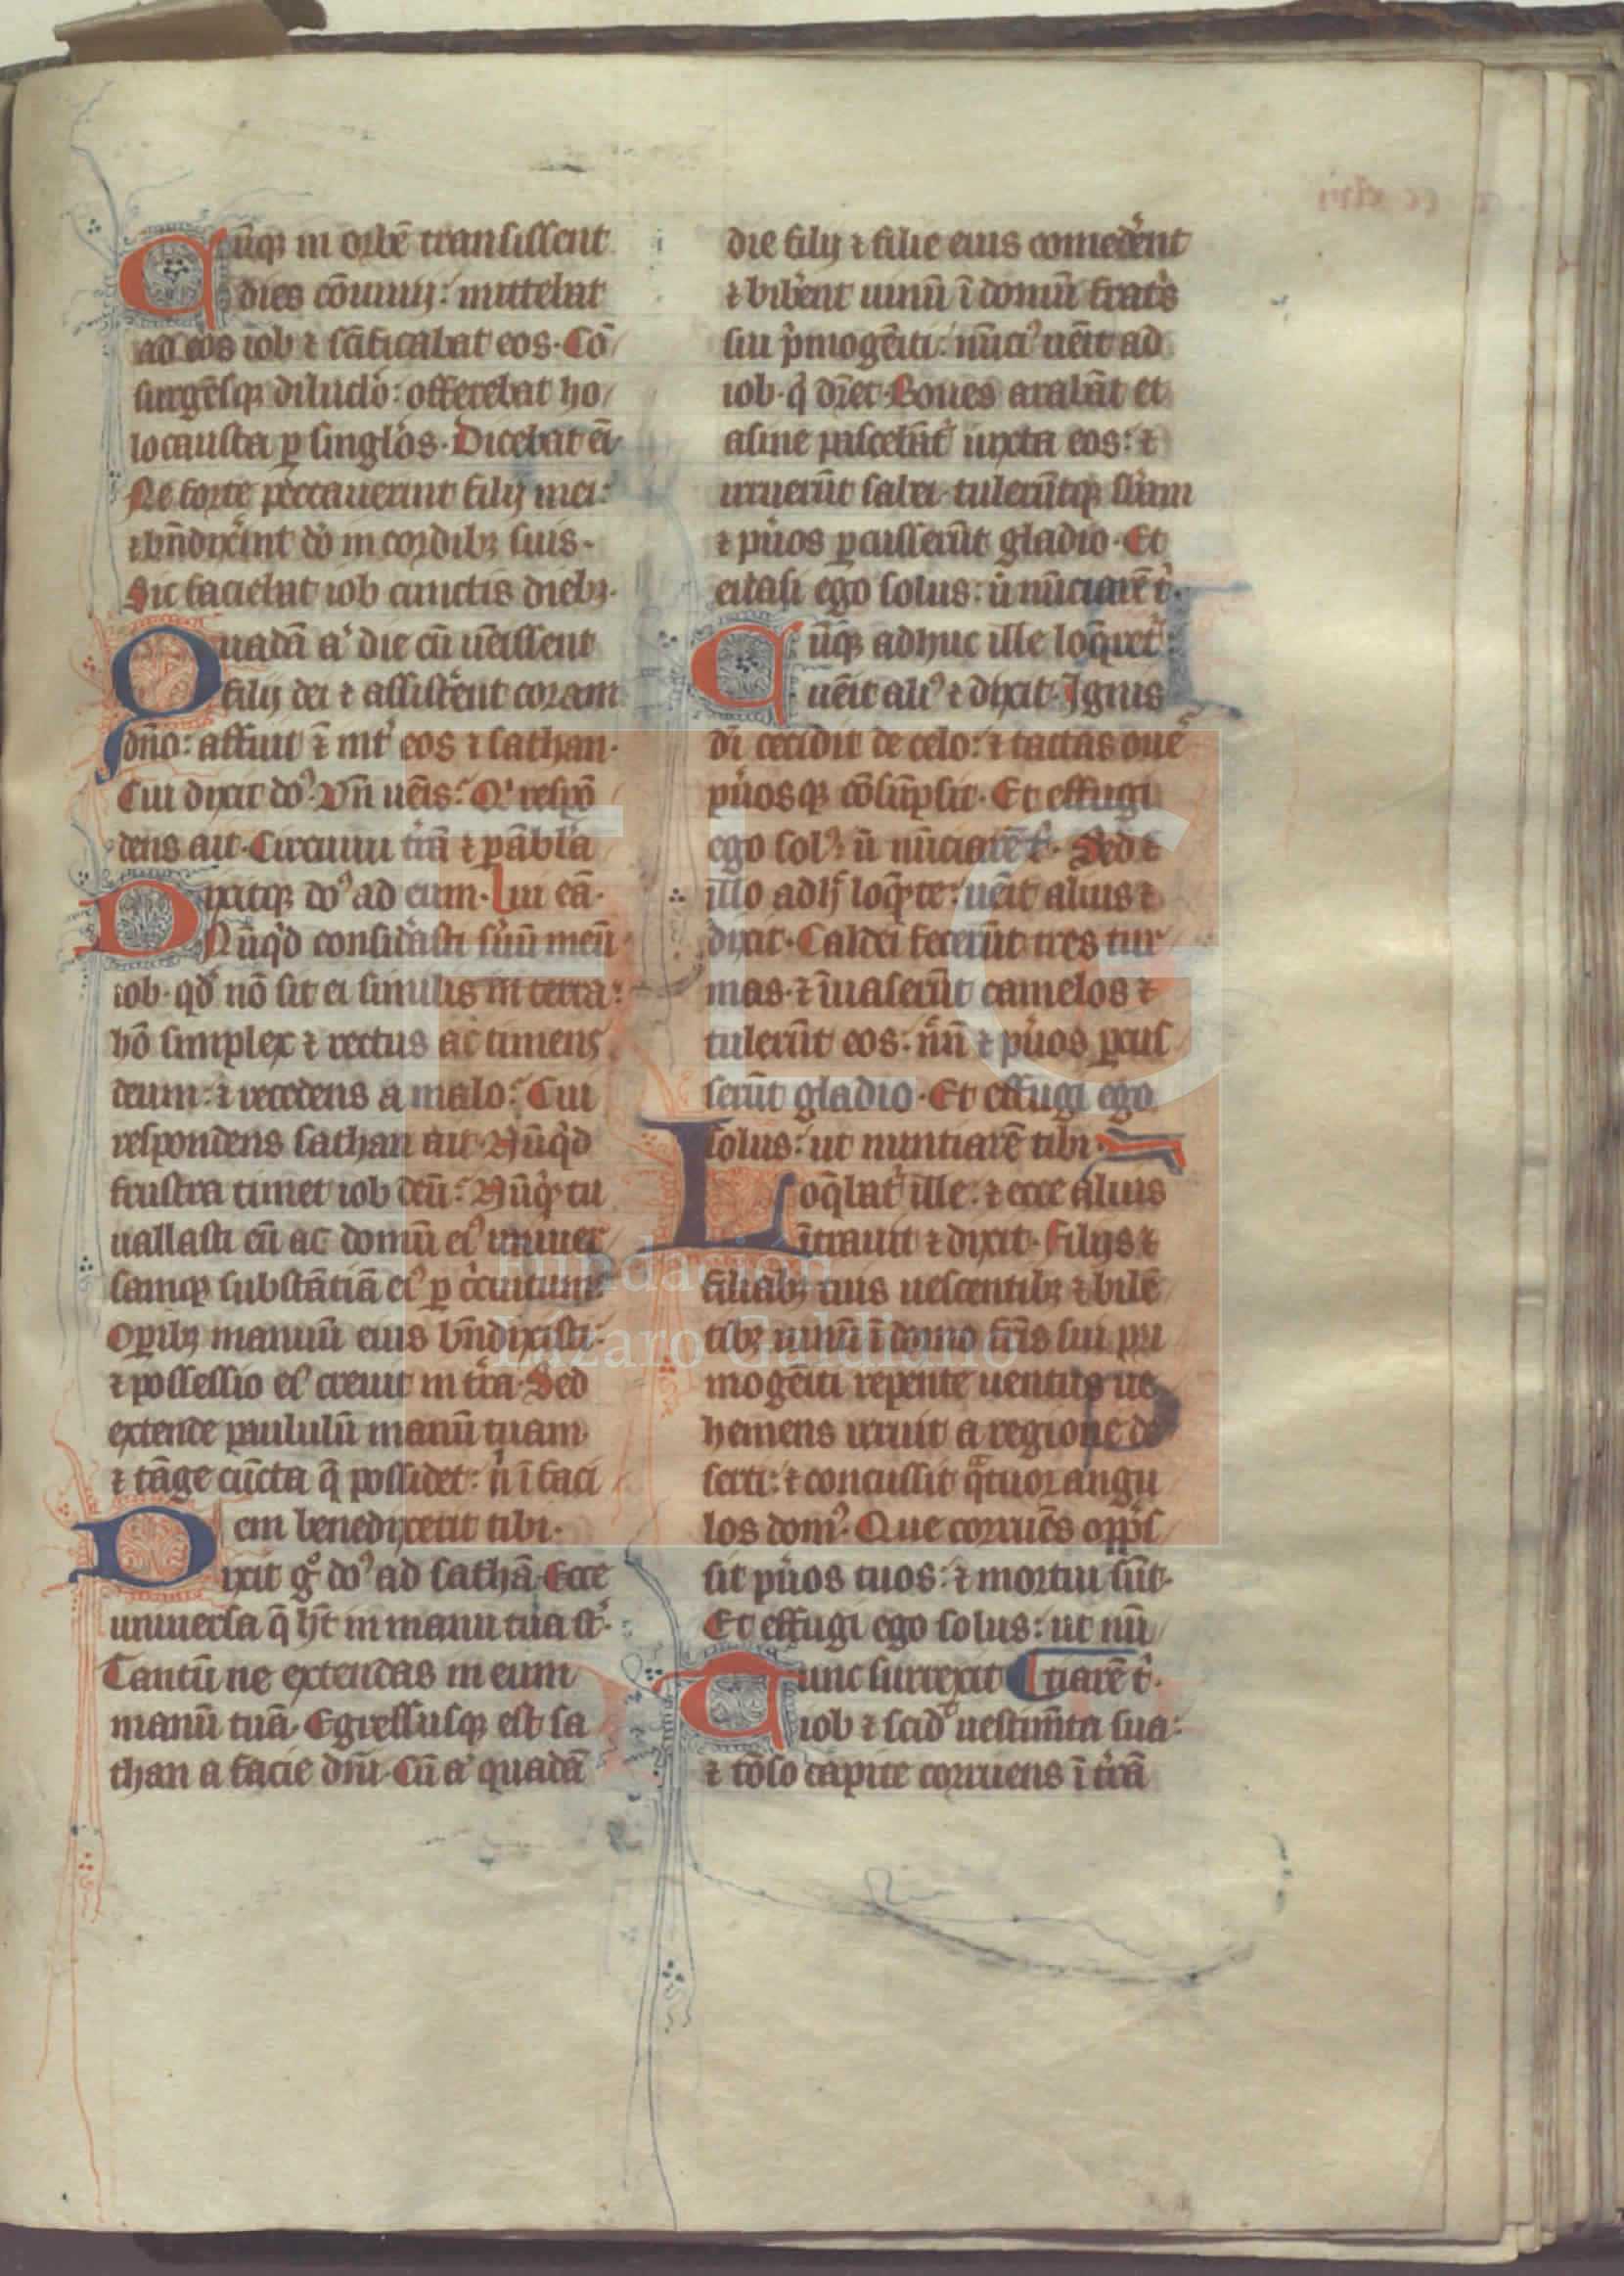 Cūq; in orbē transissent
dies cōuiuij: mittebat
ad eos iob ⁊ scīficabat eos. Cō
surgēsq; diluclo: offerebat ho
locausta ꝑ singlos. Dicebat eī
Ne forte peccauerint filij mei:
⁊ bn̄dixerint dō in cordib; suis.
Sic faciebat iob cunctis dieb;.
Quadā a' die cū uēissent
filij dei ⁊ assistent coram
dn̄o: affuit ī int' eos ⁊ sathan.
Cui dixit do'. Vn̄ uēis: Qi respō
dens ait. Circuiui t'rā ⁊ ꝑābl'a
Dixitq; do' ad eum. ui eā.
Nūqd considasti s'uū meū
iob. qd nō sit ei similis in terra:
hō simplex ⁊ rectus ac timens
deum: ⁊ recedens a malo: Cui
respondens sathan ait. Nūqd
frustra timet iob deū: Nūq' tu
uallasti eū ac domū ei' uniuer
samq; substātiā ei' ꝑ c'cuitum:
Oꝑib; manuū eius bn̄dixisti:
⁊ possessio ei' creuit in t'ra. Sed
extende paululū manū tuam
⁊ tāge cūcta q̄ possidet: n' ī faci
em benedixerit tibi.
Dixit g° do' ad sathā. Ecce
uniuersa q̄ h̄t in manu tua s̄t.
Tantū ne extendas in eum
manū tuā. Egressusq; est sa
than a facie dn̄i. Cū a' quadā
die filij ⁊ filie eius comederent
⁊ biberent uinū ī domū frat's
sui p'mogēiti: nūci' uēit ad
iob. q' dn̄et. Boues arabāt et
asine pascebāt' iuxta eos: ⁊
irruerūt sabei. tulerūtq; om̄am
⁊ pu'os ꝑcusserūt gladio. Et
euasi ego solus: ū nūciarē t'.
Cūq; adhuc ille loq̄ret':
uēit ali' ⁊ dixit. Ignis
di cecidit de celo: ⁊ tactas oue
pu'osq; cōsūpsit. Et effugi
ego sol': ū nūciarē t'. Sed ⁊
illo adh' loq̄nte: uēit alius ⁊
dixit. Caldei fecerūt tres tur
mas. ⁊ īuaserūt camelos ⁊
tulerūt eos: n̄n̄ ⁊ pu'os ꝑcus
serūt gladio. Et effugi ego
solus: ut nuntiarē tibi.
Loq̄bat' ille: ⁊ ecce alius
ītrauit ⁊ dixit. Filijs ⁊
filiab; tuis uescentib; ⁊ bibē
tib; uinū ī domo fr̄is sui pri
mogēiti repente uentus ue
hemens irruit a regione de
serti: ⁊ concussit q̄tuor angu
los dom'. Que corruēs opp̄s
sit pu'os tuos: ⁊ mortui sūt.
Et effugi ego solus: ut nū
tiarē t'.
Tunc surrexit
iob ⁊ scid' uestim̄ta sua:
⁊ tōso capite corruens ī t'rā
FLG
Fundación
Lázaro Galdiano